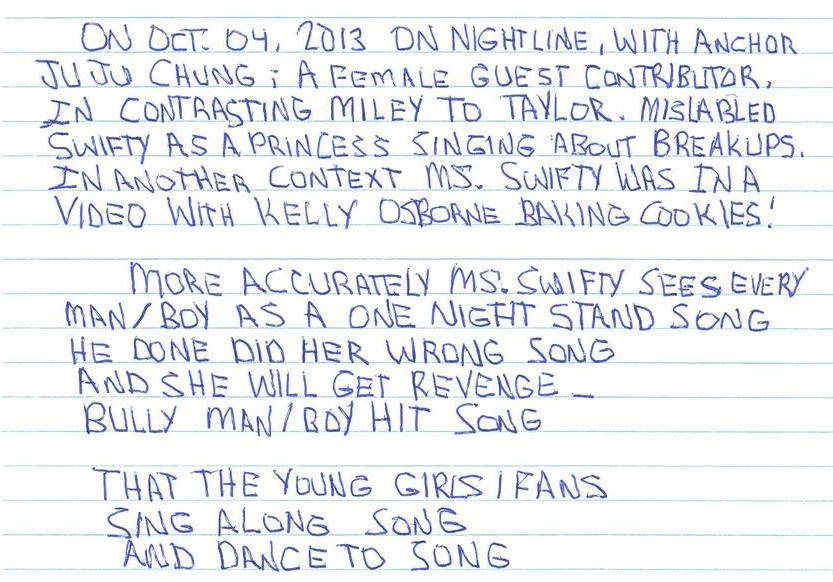 ON OCT. 04, 2013 ON NIGHTLINE, WITH ANCHOR
JU JU CHUNG; A FEMALE GUEST CONTRIBUTOR,
IN CONTRASTING MILEY TO TAYLOR. MISLABLED
SWIFTY AS A PRINCESS SINGING ABOUT BREAKUPS.
IN ANOTHER CONTEXT MS. SWIFTY WAS IN A
VIDEO WITH KELLY OSBORNE BAKING COOKIES!
MORE ACCURATELY MS. SWIFTY SEES EVERY
MAN/BOY AS A ONE NIGHT STAND SONG
HE DONE DID HER WRONG SONG
AND SHE WILL GET REVENGE _
BULLY MAN/BOY HIT SONG
THAT THE YOUNG GIRLS/FANS
SING ALONG SONG
AND DANCE TO SONG